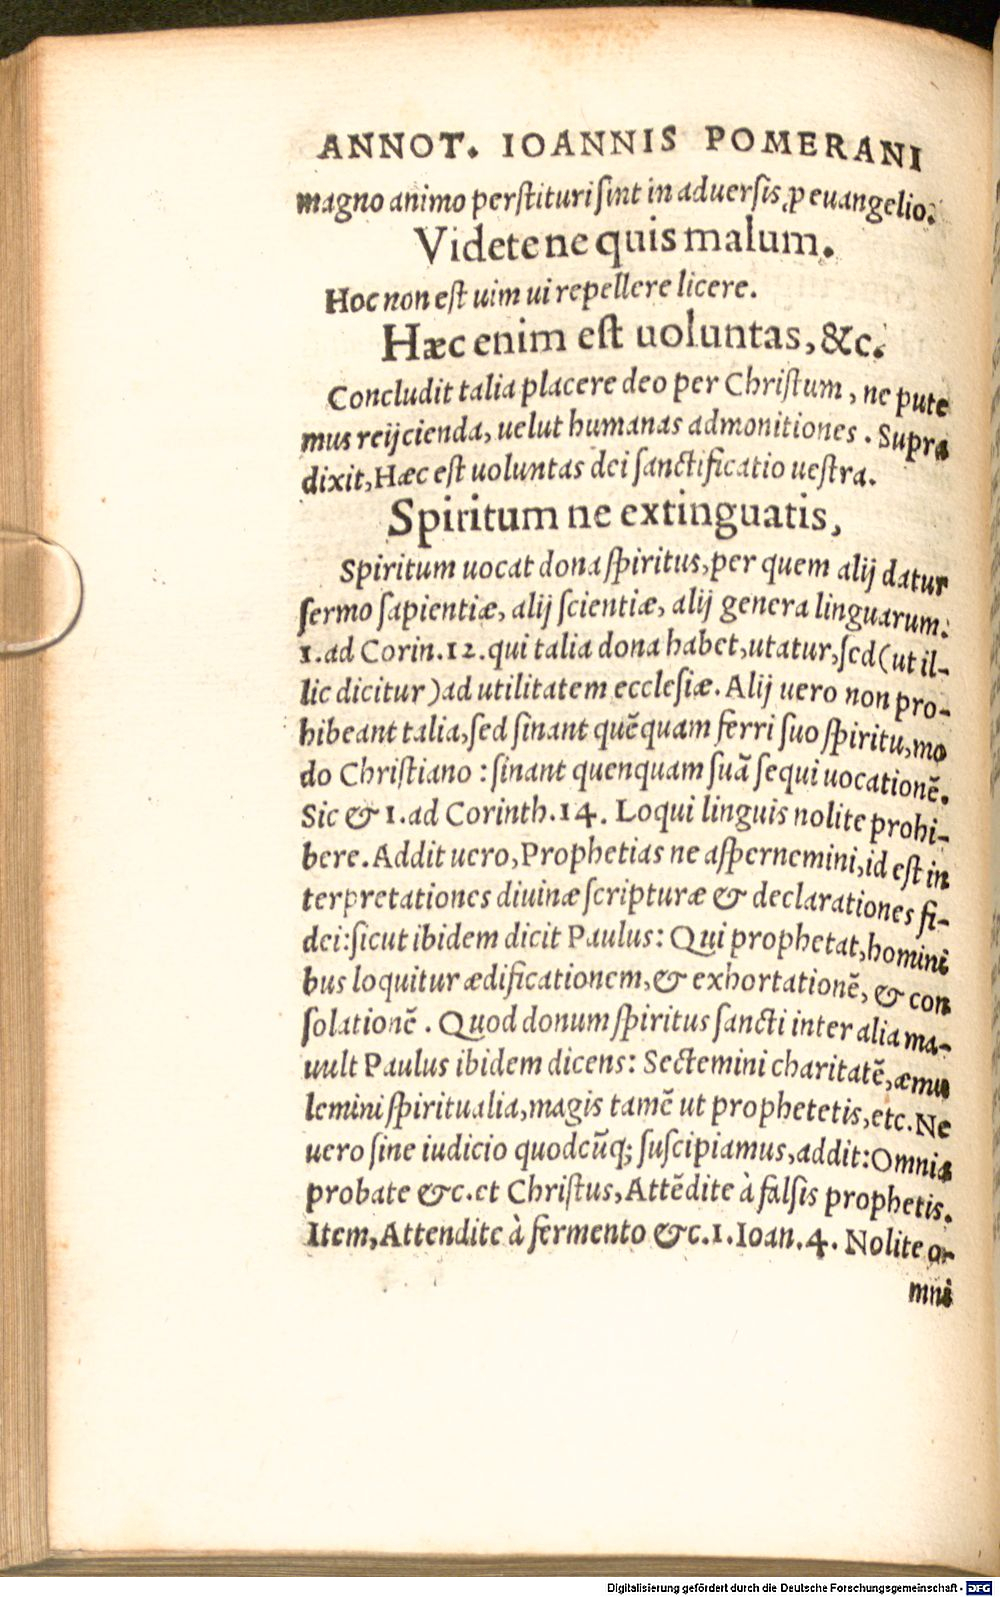 ANNOT. IOANNIS POMERANI
magno animo perſtituri ſint in aduerſis, ꝓ euangelio.
Videte ne quis malum.
Hoc non eſt uim ui repellere licere.
Hæc enim eſt uoluntas, &c.
Concludit talia placere deo per Chriſtum, ne pute
mus reijcienda, uelut humanas admonitiones. Supra
dixit, Hæc eſt uoluntas dei ſanctificatio ueſtra.
Spiritum ne extinguatis,
Spiritum uocat dona ſpiritus, per quem alij datur
ſermo ſapientiæ, alij ſcientiæ, alij genera linguarum.
1. ad Corin. 12. qui talia dona habet, utatur, ſed (ut il-
lic dicitur) ad utilitatem eccleſiæ. Alij uero non pro-
hibeant talia, ſed ſinant quẽquam ferri ſuo ſpiritu, mo
do Chriſtiano : ſinant quenquam ſuã ſequi uocationẽ.
Sic & 1. ad Corinth. 14. Loqui linguis nolite prohi-
bere. Addit uero, Prophetias ne aſpernemini, id eſt in
terpretationes diuinæ ſcripturæ & declarationes fi-
dei: ſicut ibidem dicit Paulus: Qui prophetat, homini
bus loquitur ædificationem, & exhortationẽ, & con
ſolationẽ. Quod donum ſpiritus ſancti inter alia ma-
uult Paulus ibidem dicens: Sectemini charitatẽ, æmu
lemini ſpiritualia, magis tamẽ ut prophetetis, etc. Ne
uero ſine iudicio quodcũq; ſuſcipiamus, addit: Omnia
probate &c. et Chriſtus, Attẽdite à falſis prophetis.
Item, Attendite à fermento &c. 1. Ioan. 4. Nolite o-
mni
Digitalisierung gefördert durch die Deutsche Forschungsgemeinschaft - DFG